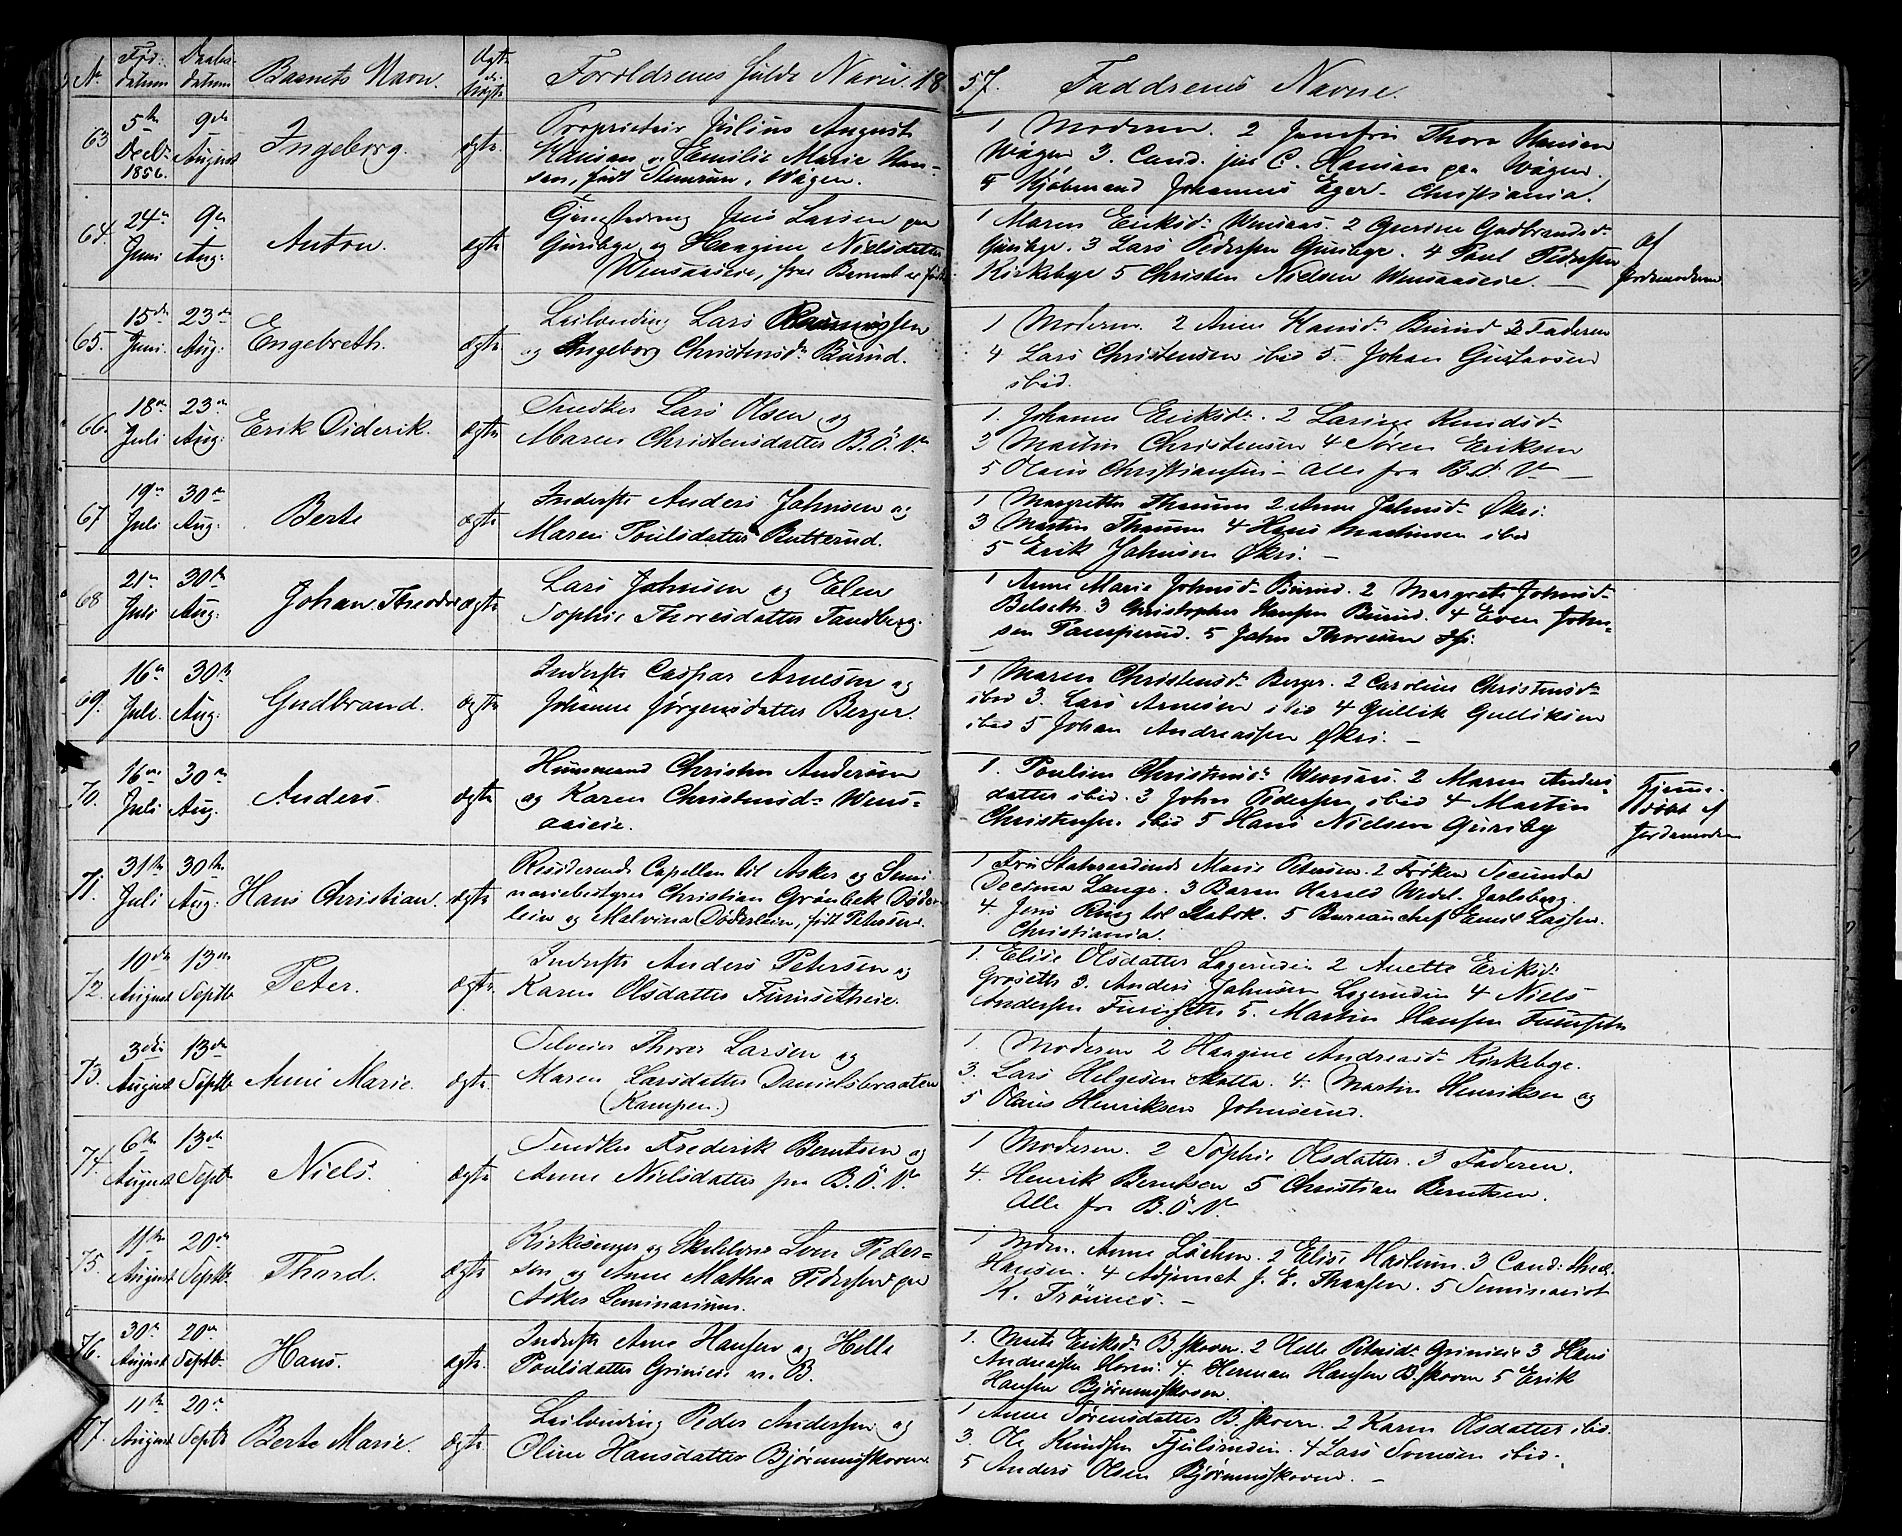 No Fød: datum Daabs- datum Barnets Navn. Ægte Uægte Foroldrenes fulde Navn. 18 57. Faddrenes Navne.
63 5te Decbr 1856. 9de August Ingeborg. ægte.
Proprietair Julius August
Hansen og Emilie Marie Han-
sen, født Wøyen.
1 Moderen. 2 Jomfru Thora Hansen
Wøyen 3. Cand. jur C. Hansen Wøyen.
5 Kjøbmand Johannes Eger. Christiania.
64. 24de Juni 9de Aug: Anton. ægte
Lars Larsen
Gursbye og Haagine Nielsdatter
Wensaaseie, hvor Barnet er født
1 Maren Eriksd. Wensaas. 2 Gudbrandsd.
Gursbye. 3 Lars Pedersen Gursbye. 4 Paul Pedersen
Kirkebye 5 Christen Nielsen Wensaaseie.
af
Jordemoderen
65. 15de Juni. 23de Aug: Engebreth. ægte
Leilænding Lars Rasmussen
og Ingeborg Christensd. Burud.
1 Moderen. 2 Anne Hansd. Burud 3 Faderen
4 Lars Christensen ibid 5. Johan Gustavsen
ibid.
66. 18de Juli 23de Aug: Erik Diderik. ægte
Snedker Lars Olsen og
Maren Christensdatter B.Ö.V.
1. Johanne Eriksd. 2 Larine Knudsd.
3 Martin Christensen 4 Søren Eriksen
5 Olaus Christiansen - Alle fra B.Ö.V.
67 19de Juli 30te Aug. Berte ægte
Inderste Anders Jahnsen og
Maren Poulsdatter Butterud.
1 Margrethe 2 Anne Jahnsd. Økri.
3 Martin 4 Hans Mathisen ibid
5 Erik Jahnsen Økri.
68 21de Juli 30te Aug. Johan Theodor ægte
Lars Johnsen og Elen
Sophie Thoresdatter Tandberg.
1 Anne Marie Johnsd. Burud. 2 Margrete Johnsd.
Belseth. 3 Christopher Hansen Burud. 4 Even John-
sen 5 John Thoresen
69. 16de Juli. 30te Aug. Gudbrand. ægte
Inderste Caspar Arnesen og
Johanne Jørgensdatter Berger.
1 Maren Christensd. Berger. 2 Caroline Christensd.
ibid 3. Lars Arnesen ibid 4 Gullik Gulliksen
ibid 5 Johan Andreassen Økri.
70. 16de Juli 30te Aug. Anders. ægte
Huusmand Christen Andersen
og Karen Christensd. Wens-
aaseie.
1. Pouline Christensd. Wensaas. 2 Maren Anders-
datter ibid. 3 John Pedersen ibid 4 Martin
Christensen ibid 5 Hans Nielsen Gursby
Hjemme-
døbt af
Jordemoderen
71. 31te Juli 30te Aug: Hans Christian. ægte
Residerende Capellan til Asker og Semi-
nariebestyrer Christian Grønbek Døder-
lein og Malvina Døderlein, født Petersen.
1 Fru Statsraadinde Marie Petersen. 2 Frøken Secunda
Decima Lange. 3 Baron Harald Wedel-Jarlsberg.
4. Jens Ring til Stabek. 5 Bureauchef Emil Lassen.
Christiania.
72. 10de August 13de Septb. Peter. ægte.
Inderste Anders Petersen og
Karen Olsdatter Finnsetheie.
1. Elise Olsdatter Lagerudeie 2 Anette Eriksd.
Groseth 3. Anders Jahnsen Lagerudeie 4 Niels
Andersen 5. Martin Hansen
73. 3die August 13de Septb. Anne Marie. ægte.
Selveier Thorer Larsen og
Maren Larsdatter Danielsbraaten
(Kampen.)
1. Moderen 2 Haagine Andreasd. Kirkebye.
3. Lars Helgesen Skatta. 4. Martin Henriksen og
5 Olaus Henriksen Johnsrud.
74. 6te August 13de Septb. Niels. ægte
Snedker Frederik Berntsen og
Anne Nielsdatter fra B.Ö.V.
1 Moderen. 2 Sophie Olsdatter. 3 Faderen.
4. Henrik Berntsen 5 Christian Berntsen.
Alle fra B.Ö.V.
75. 11te August 20de Septb. Thord. ægte
Kirkesanger og Skolelærer Peder-
sen og Anne Mathea Pedersen paa
Asker Seminarium.
1 Mdm. Anne Løchen. 2 Elise Haslum. 3 Cand: theol.
Hansen. 4 Adjunct J. E. Thaasen. 5 Seminarist
K. Trönnes.
76. 30te August 20de Septb. Hans. ægte
Inderste Arne Hansen og Helle
Poulsdatter Grinieie v. B.
1. Marte Eriksd. B.skoven. 2 Helle Petersd. Grinieie 3 Hans
Andreasen 4 Herman Hansen B.skoven 5 Erik
Hansen Bjørumskoven.
77. 11te August 20de Septb Berte Marie. ægte.
Leilænding Peder Andersen og
Oline Hansdatter Bjørumskoven.
1 Anne Sørensdatter B.skoven. 2 Karen Olsdatter ibid.
3. Ole Knudsen 4 Lars ibid.
5 Anders Olsen Bjørumskoven.